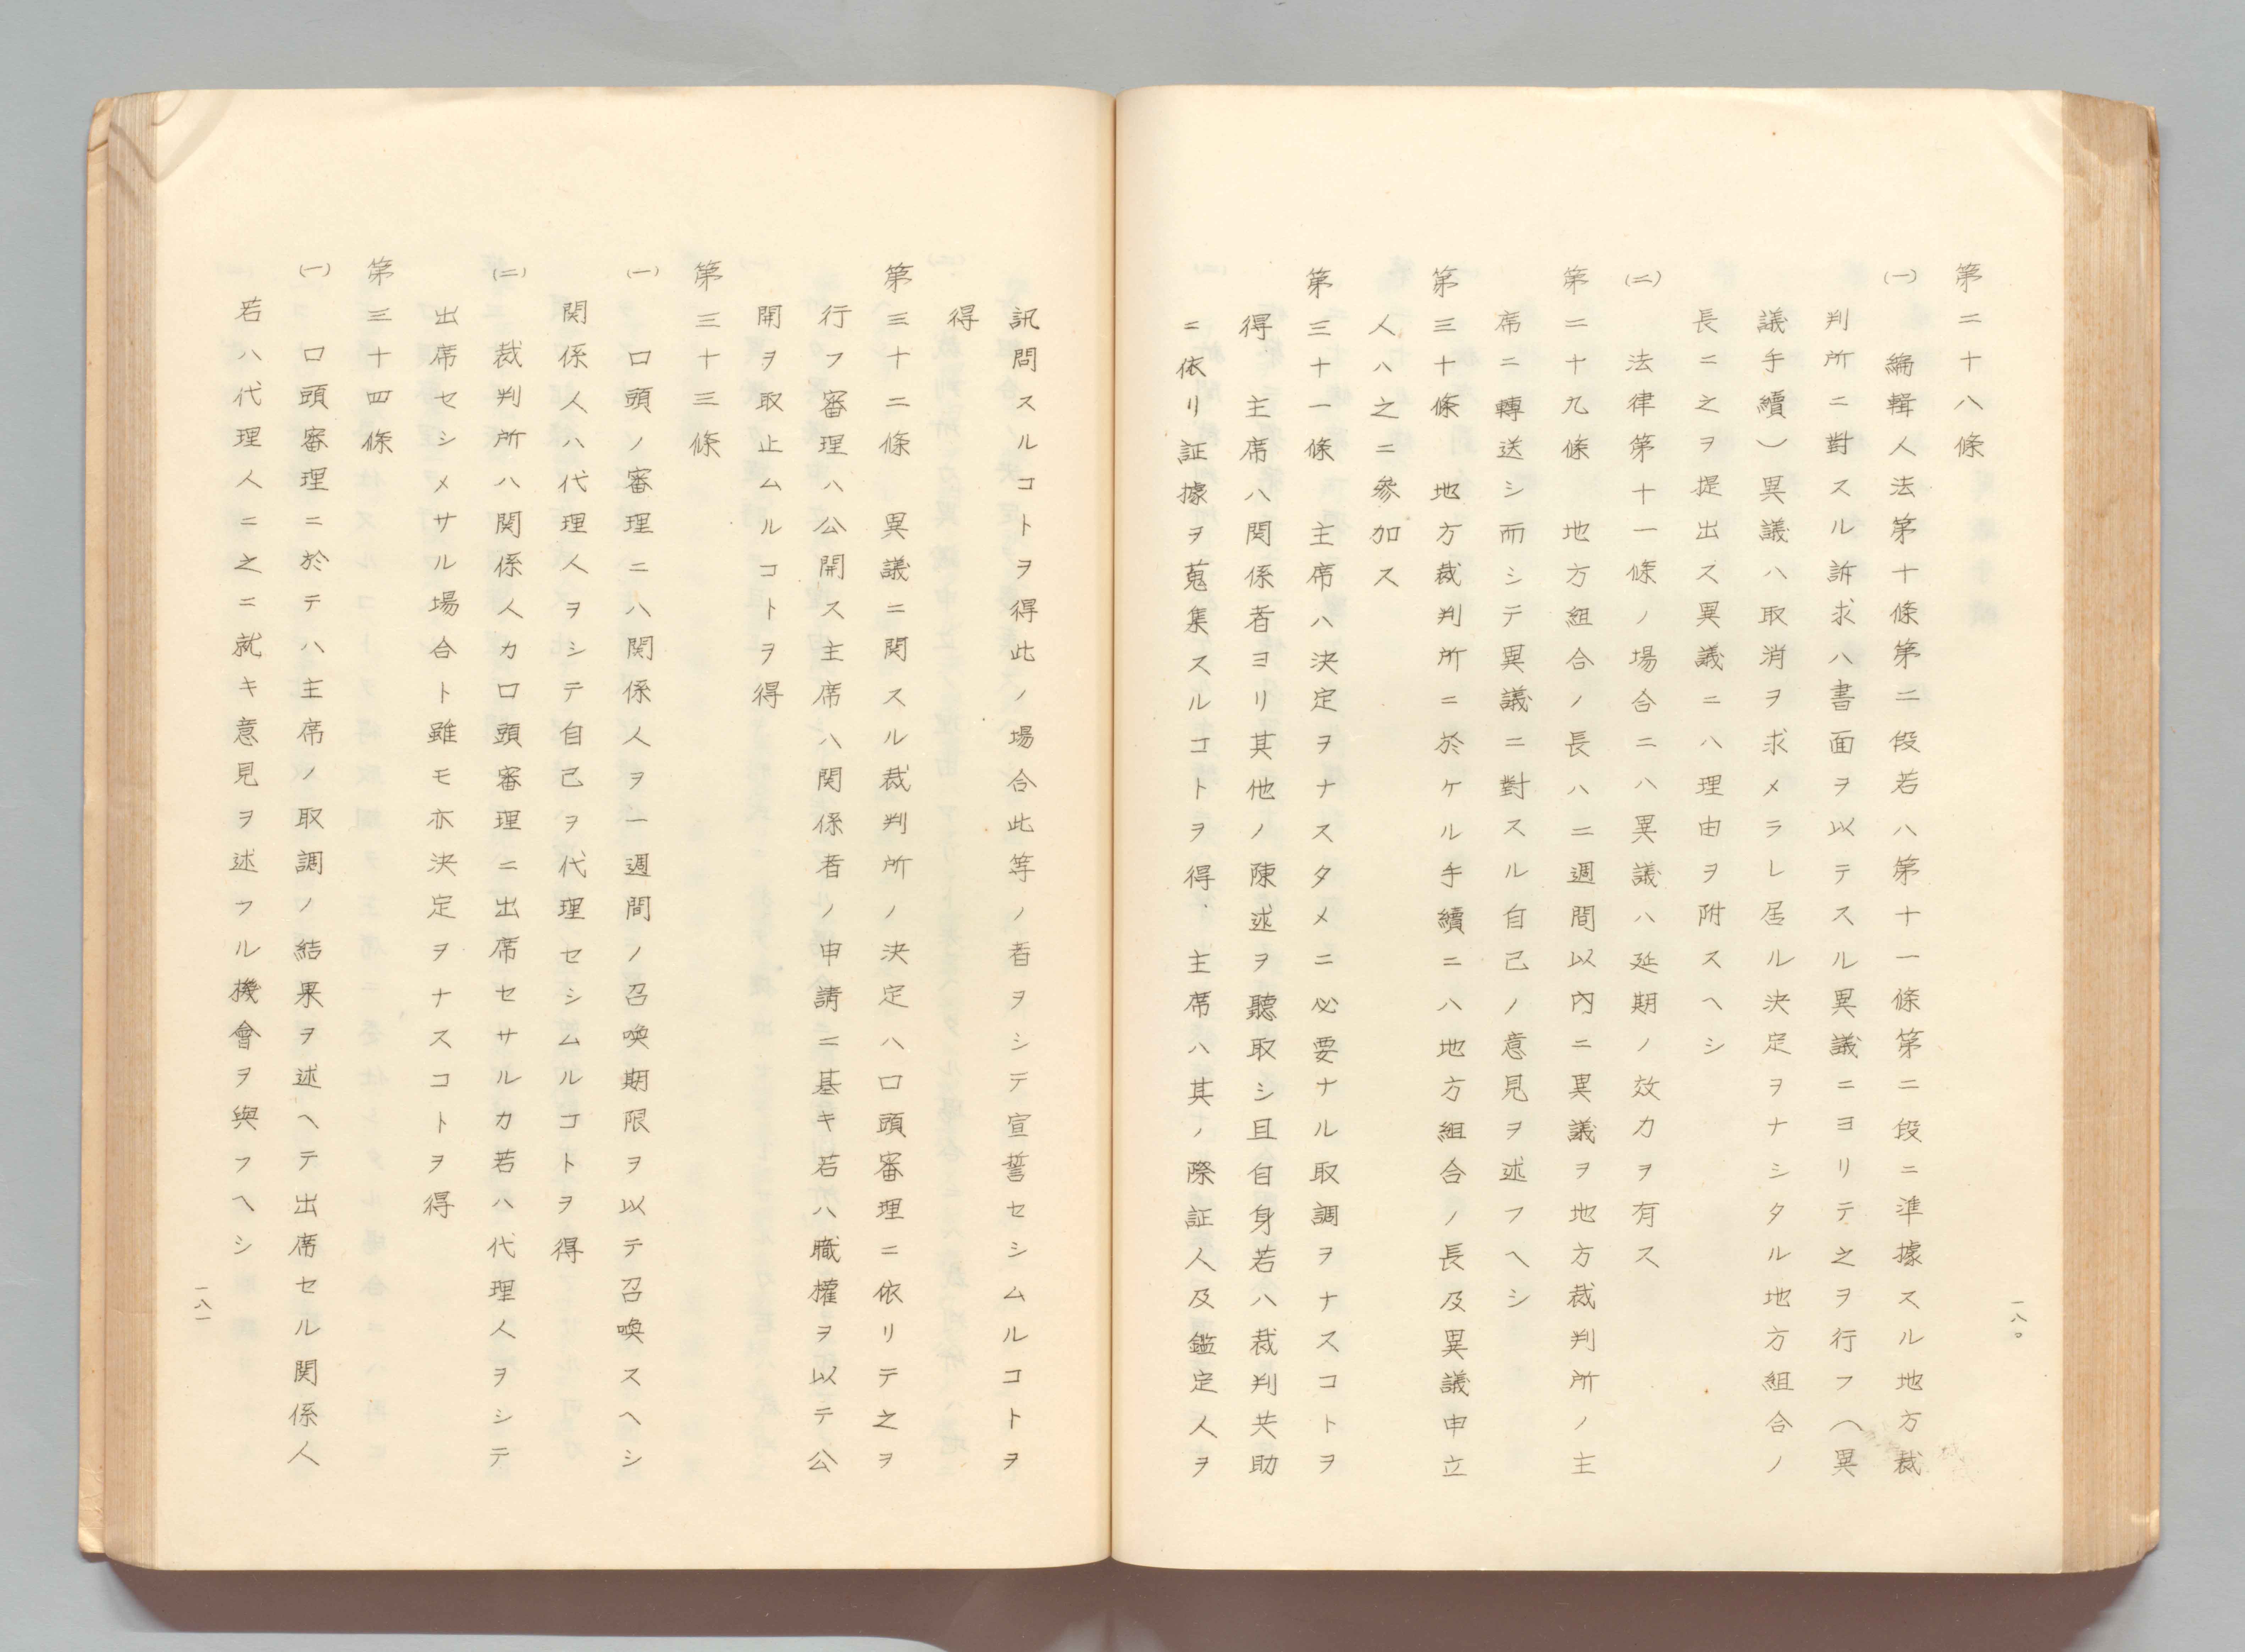 第二十八條
(一)　編輯人法第十條第二段若ハ第十一條第二段ニ準據スル地方裁
判所ニ對スル訴求ハ書面ヲ以テスル異議ニヨリテ之ヲ行フ(異
議手續)異議ハ取消ヲ求メラレ居ル決定ヲナシタル地方組合ノ
長ニ之ヲ提出ス異議ニハ理由ヲ附スヘシ
(二)　法律第十一條ノ場合ニハ異議ハ延期ノ效力ヲ有ス
第二十九條　地方組合ノ長ハ二週間以內ニ異議ヲ地方裁判所ノ主
席ニ轉送シ而シテ異議ニ對スル自己ノ意見ヲ述フヘシ
第三十條　地方裁判所ニ於ケル手續ニハ地方組合ノ長及異議申立
人ハ之ニ參加ス
第三十一條　主席ハ決定ヲナスタメニ必要ナル取調ヲナスコトヲ
得　主席ハ関係者ヨリ其他ノ陳述ヲ聽取シ且自身若ハ裁判共助
ニ依リ証據ヲ蒐集スルコトヲ得.主席ハ其ノ際証人及鑑定人ヲ
一八〇
訊問スルコトヲ得此ノ場合此等ノ者ヲシテ宣誓セシムルコトヲ
得
第三十二條　異議ニ関スル裁判所ノ決定ハ口頭審理ニ依リテ之ヲ
行フ審理ハ公開ス主席ハ関係者ノ申請ニ基キ若ハ職權ヲ以テ公
開ヲ取止ムルコトヲ得
第三十三條
(一)　口頭ノ審理ニハ関係人ヲ一週間ノ召喚期限ヲ以テ召喚スヘシ
関係人ハ代理人ヲシテ自己ヲ代理セシムルコトヲ得
(二)　裁判所ハ関係人カ口頭審理ニ出席セサルカ若ハ代理人ヲシテ
出席セシメサル場合ト雖モ亦決定ヲナスコトヲ得
第三十四條
(一)　口頭審理ニ於テハ主席ノ取調ノ結果ヲ述ヘテ出席セル関係人
若ハ代理人ニ之ニ就キ意見ヲ述フル機會ヲ與フヘシ
一八一